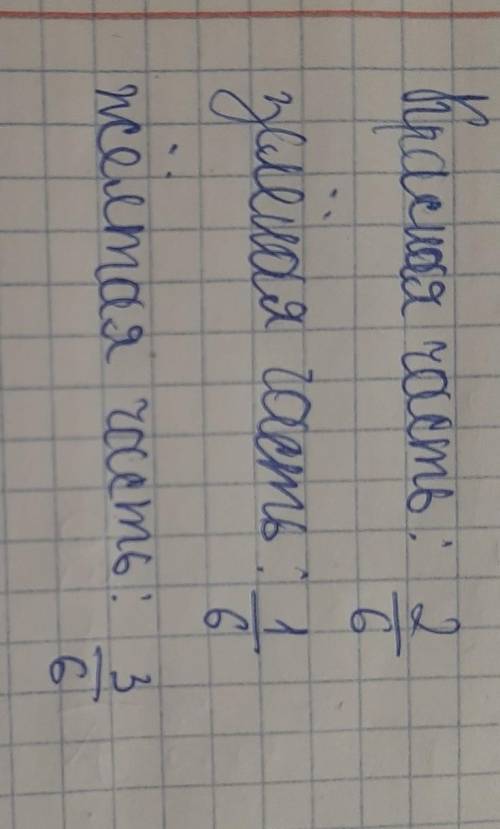 Красная часть: 2/6
зелёная часть: 1/6
жёлтая часть: 3/6